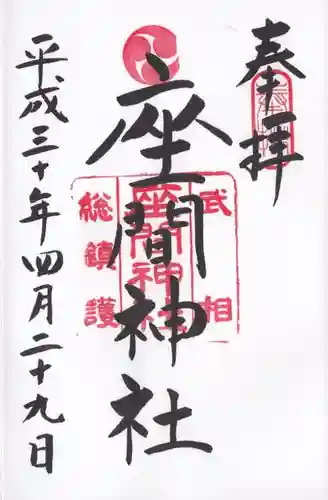 奉拝
武相
座間神社
座間神社
総鎮護
平成三十年四月二十九日